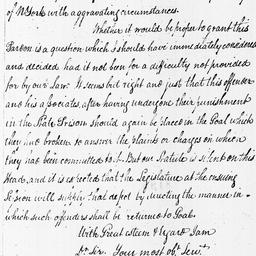 of N York with aggravating circumstances.
Whether it would be proper to grant this
Pardon is a question which I should have immediately considered
and decided had it not been for a difficulty not provided
for by our Laws. It seems but right and just that this offender
and his associates, after having undergone their punishment
in the State Prison should again be placed in the Goal which
they had broken to answer the plaints or charges on which
they had been committed to it. But our Statute is silent on this
Head, and it is expected that the Legislature at the ensuing
Session will supply that defect by directing the manner in
which such offenders shall be returned to Goal.
With Great esteem & regard I am
Dr. Sir, Your most obt. Servt.